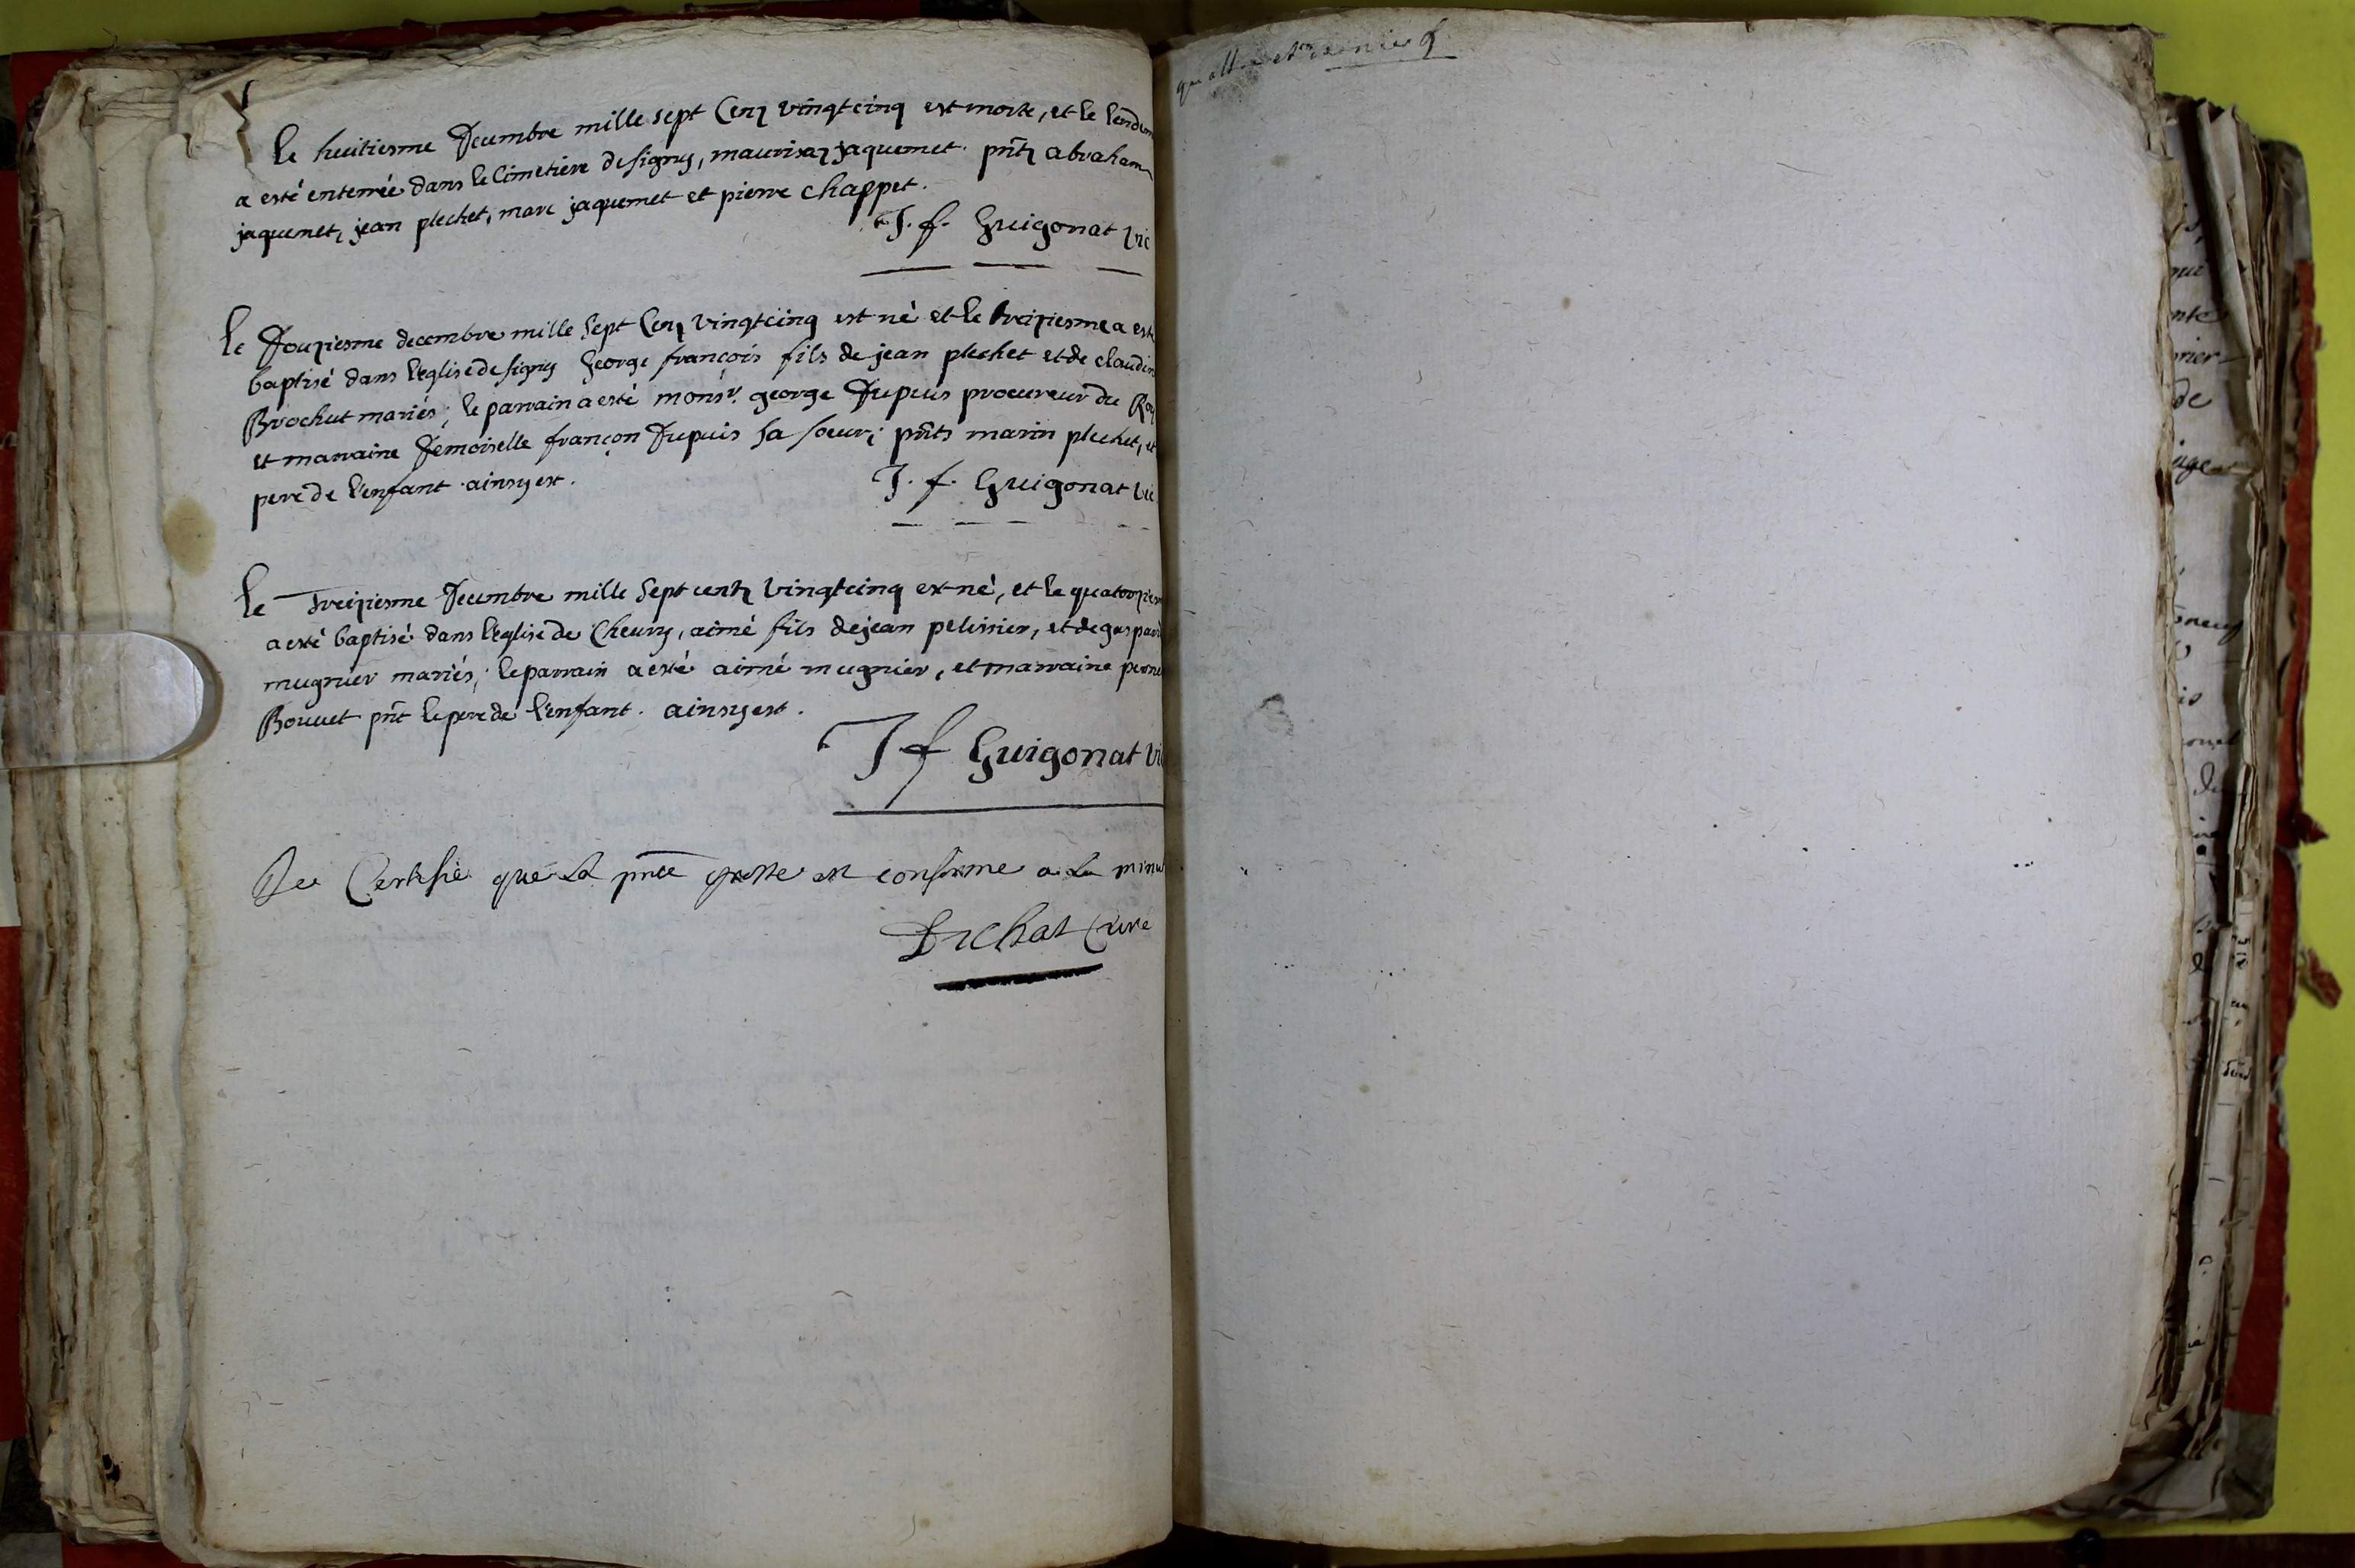 le huitiesme decembre mille sept Centz vingt cinq est morte, et le lendem
a esté enterrée dans le Cimetiere de signy, maurisaz jaquemet. pñtz abraham
jaquemet, jean plechet, marc jaquemet et pierre chappet.
J. f. Guigonat vic
le Douziesme decembre mille Sept Centz vingt cinq est né et le treiziesme a esté
baptisé dans l'eglise de signy George françois fils de jean plechet et de claudin
Brochut mariés; le parrain a esté monsr. george Dupuis procureur du Roy
et marraine Demoiselle françon Dupuis sa soeur; pñts marin plechet, et
pere de l'enfant. ainsy est.
J. f. Guigonat vic
le Treiziesme Decembre mille Sept centz vingt cinq est né, et le quatorzies
a esté baptisé dans l'eglise de Cheury, aimé fils de jean pelissier, et de gaspard
mugnier mariés; le parrain a esté aimé mugnier, et marraine perne
Bouuet pñt le pere de l'enfant. ainsy est.
J f Guigonat vic
Je Certifie que la pñte est conforme a la minu
Duchat Curé